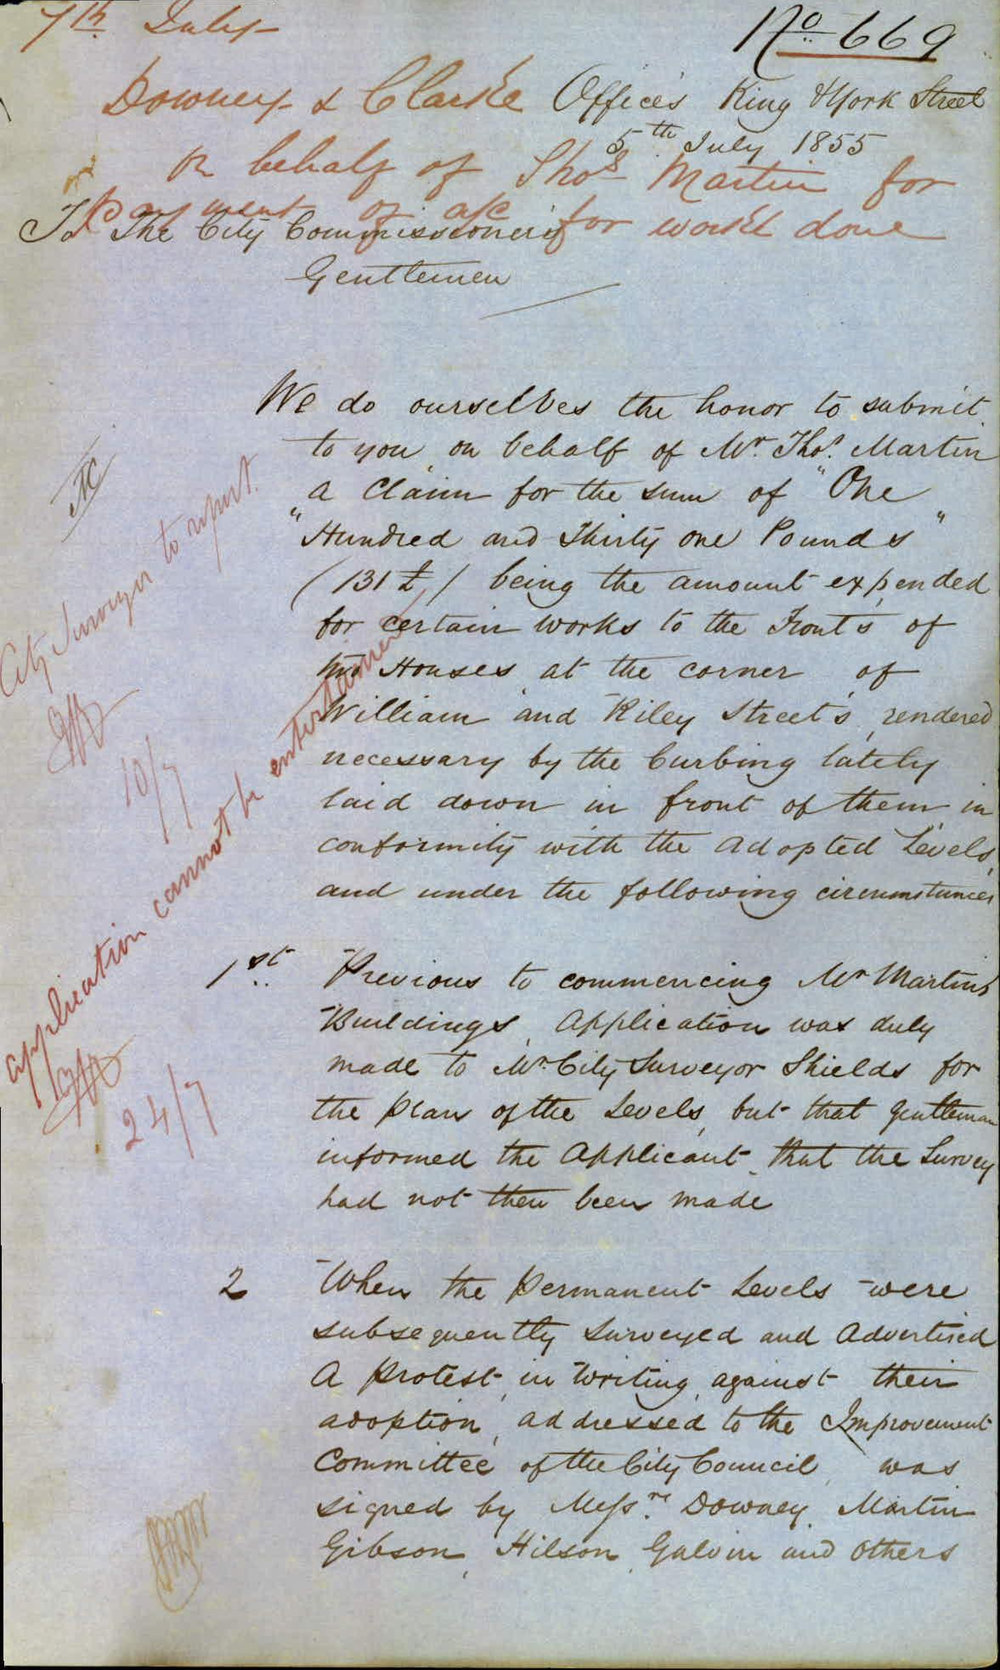 7th July
No 669
Downey & Clarke
Offices King & York Street
5th July 1855
on behalf of Thos Martin for
payment of a/c for work done
To The City Commissioners
Gentlemen
We do ourselves the honor to submit
to you on behalf of Mr. Thos. Martin
a Claim for the sum of "One
"Hundred and Thirty one Pounds"
(131£) being the amount expended
for certain works to the Fronts of
two Houses at the corner of
William and Riley Street's, rendered
necessary by the Curbing lately
laid down in front of them in
conformity with the adopted Levels,
and under the following circumstances
City Surveyor to report.
10/7
application cannot be entertained
24/7
1st. Previous to commencing Mr Martin's
Buildings, Application was duly
made to Mr City Surveyor Shields for
the plan of the Levels, but that gentleman
informed the Applicant that the Survey
had not then been made
2 When the Permanent Levels were
subsequently surveyed and Advertised
A Protest in Writing against their
adoption, addressed to the Improvement
Committee of the City Council, was
signed by Messrs. Downey, Martin
Gibson, Hilson, Galvin and others